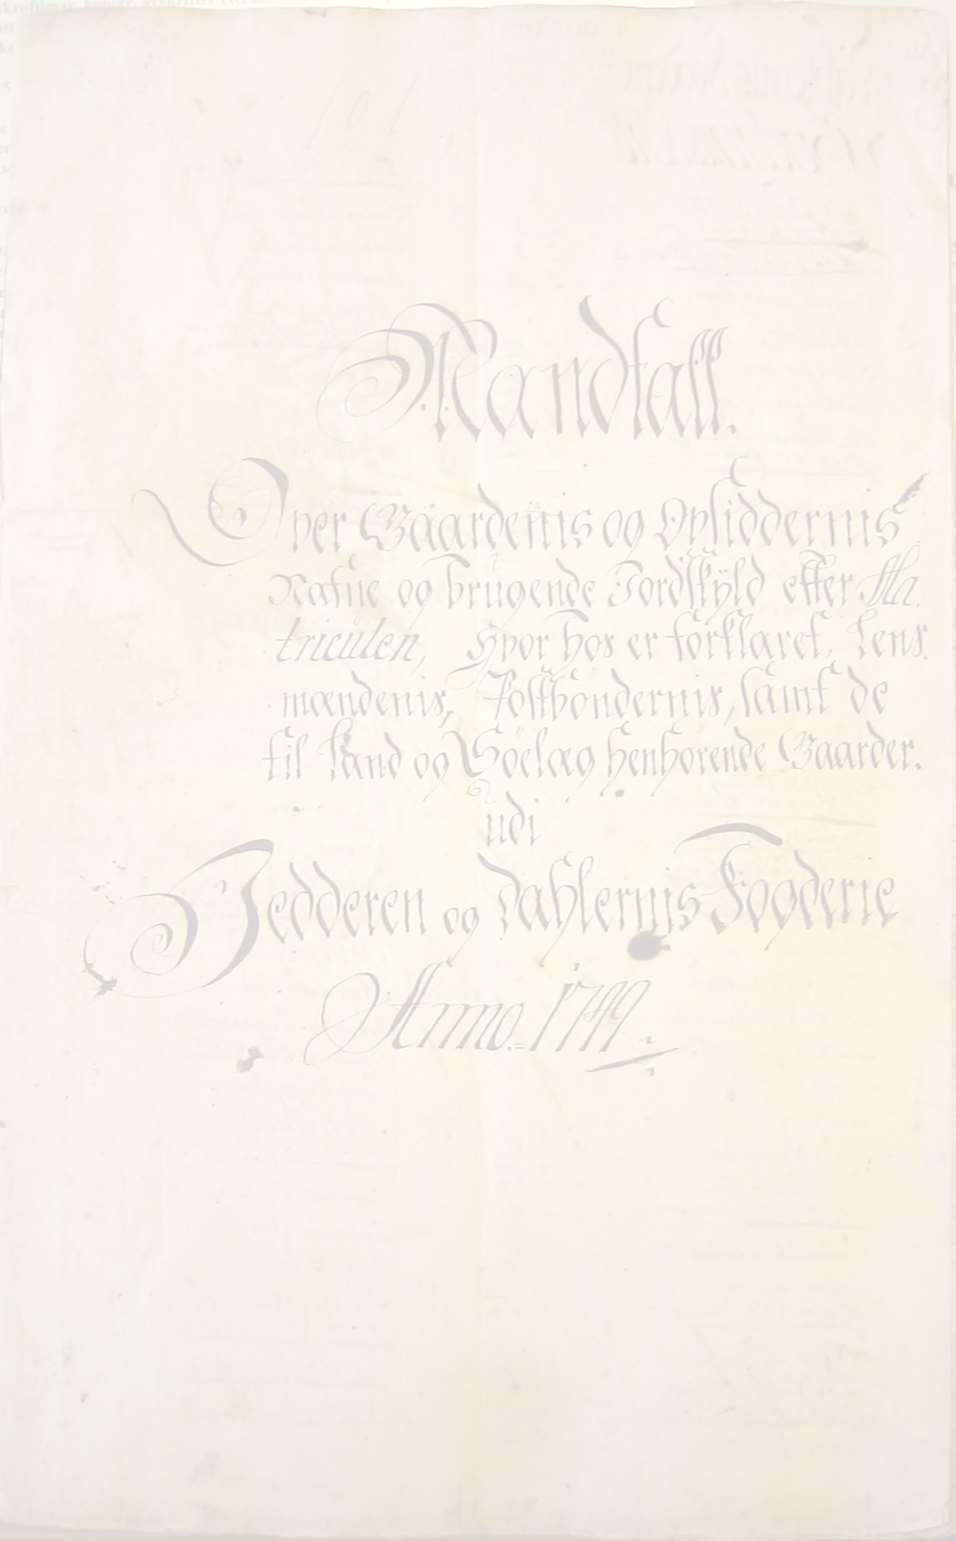 Mandtall.
Over Gaardenis og Opsiddernis
Nafne og brugende Jordskyld efter Ma,
triculen, Hvor hos er forklaret, Lens,
mændenis, Postbøndernis, samt de
til Land og Søelæg henhørende Gaarder.
udi
Jedderen og Dahlernis Fogderie
Anno. 1749.